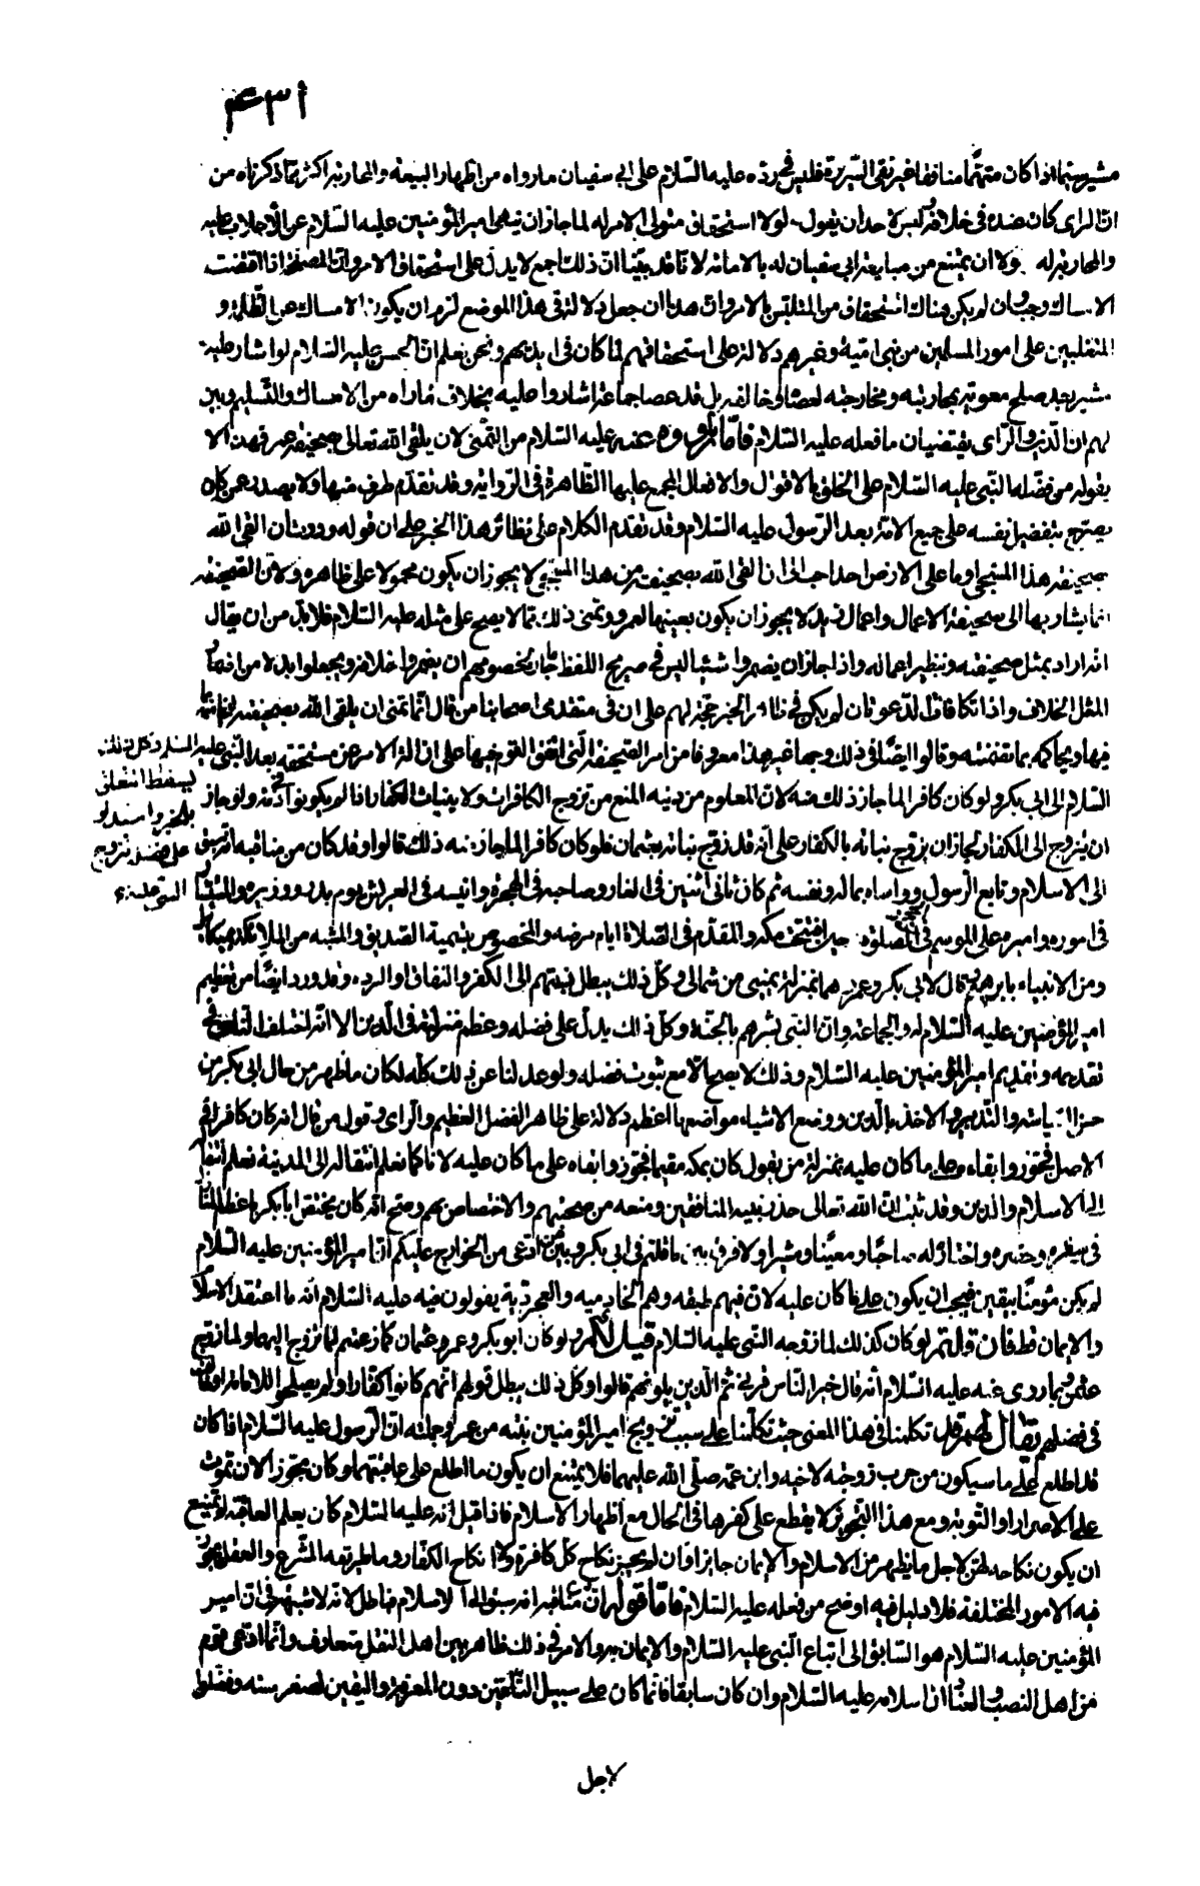 مشير سيما اذا كان متهما منافقا غير نقى السريرة فليس فى رده عليه السلام على ابى سفيان ما رواه من اظهار البيعة والمحاربة اكثر مما ذكرناه من
ان الراى كان عنده فى خلافه وليس لاحد ان يقول لولا استحقاق متولى الامر له لما جاز ان ينهى امير المؤمنين عليه السلام عن الاجلاب عليه
والمحاربة له ولا ان يمتنع من مبايعة ابى سفيان له بالامامة لانا قد بينا ان ذلك اجمع لا يدل على استحقاق الامر وان المصلحة اذا اقتضت
الامساك وجب وان لم يكن هناك استحقاق من المتلبس بالامر وان هذا ان جعل دلالة فى هذا الموضع لزم ان يكون الامساك عن الظلمة و
المتغلبين على امور المسلمين من بنى امية وغيرهم دلالة على استحقاقهم لما كان فى ايديهم ونحن نعلم ان الحسن عليه السلام لو اشار عليه
مشير بعد صلح معوية بمحاربته ومخارجته لعصاه وخالفه بل قد عصا جماعة اشاروا عليه بخلاف ما راه من الامساك والتسليم وبين
لهم ان الدين والراى يقتضيان ما فعله عليه السلام فاما ما رووه عنه عليه السلام من التمنى لان يلقى الله تعالى بصحيفة عمر فهذا لا
يقوله من فضله النبى عليه السلام على الخلق بالاقوال والافعال المجمع عليها الظاهرة فى الرواية وقد تقدم طرف منها ولا يصدر عمن كان
يصرح بتفضيل نفسه على جميع الامة بعد الرسول عليه السلام وقد تقدم الكلام على نظائر هذا الخبر على ان قوله وددت ان القى الله
بصحيفة هذا المسجى وما على الارض احد احب الى ان القى الله بصحيفته من هذا المسجى لا يجوز ان يكون محمولا على ظاهره ولان الصحيفة
انما يشار بها الى صحيفة الاعمال واعمال زيد لا يجوز ان يكون بعينها لعمرو وتمنى ذلك مما لا يصح على مثله عليه السلام فلا بد من ان يقال
انه اراد بمثل صحيفته وبنظير اعماله واذا جاز ان يضمروا شيئا ليس فى صريح اللفظ جاز لخصومهم ان يضمروا خلافه ويجعلوا بدلا من اضمار
المثل الخلاف واذا تكافات الدعوتان لم يكن فى ظاهر الخبر حجة لهم على ان فى متقدمى اصحابنا من قال انما تمنى ان يلقى الله بصحيفته ليخاصمه
فيها ويحاكمه بما تضمنته وقالوا ايضا فى ذلك وجها غير هذا معروفا من امر الصحيفة التى اتفق القوم فيها على ازالة الامر عن مستحقه بعد النبى عليه السلام وكل ذلك
يسقط التعلق
بالخبر واستدلوا
على فضله بتزوج
النبى عليه
السلام الى ابى بكر ولو كان كافرا لما جاز ذلك منه لان المعلوم من دينه المنع من تزوج الكافرات ولا بنات الكفار اذا لم يكونوا اهل ذمة ولو جاز
ان يتزوج الى الكفار لجاز ان يزوج بناته بالكفار على انه قد زوج بناته بعثمان فلو كان كافرا لما جاز منه ذلك قالوا وقد كان من مناقبه انه سبق
الى الاسلام وتابع الرسول وواساه بماله ونفسه ثم كان ثانى اثنين فى الغار وصاحبه فى الهجرة وانيسه فى العريش يوم بدر ووزيره والمستشار
فى اموره واميره على الموسم فى الحج حين افتتحت مكة والمقدم فى الصلاة ايام مرضه والمخصوص بتسمية الصديق والمشبه من الملائكة بميكائيل
ومن الانبياء بابرهيم قال لابى بكر وعمر هما بمنزلة يمينى من شمالى وكل ذلك يبطل نسبتهم الى الكفر والنفاق او الردة وقد ورد ايضا من تعظيم
امير المؤمنين عليه السلام له والجماعة وان النبى بشرهم بالجنة وكل ذلك يدل على فضله وعظم منزلته فى الدين الا انه اختلف الناس فى
تقديمه وتقديم امير المؤمنين عليه السلام وذلك لا يصح الا مع ثبوت فضله ولو عدلنا عن ذلك كله لكان ما ظهر من حال ابى بكر من
حزالة والتدبير والاخذ بالدين ووضع الاشياء مواضعها اعظم دلالة على ظاهر الفضل العظيم والراى وقول من قال انه كان كافرا فى
الاصل فتجوز وابقاءه على ما كان عليه بمنزلة من يقول كان بمكة مقيما فتجوز وابقاه على ما كان عليه لانا كما نعلم انتقاله الى المدينة نعلم انتقاله
الى الاسلام والدين وقد ثبت ان الله تعالى حذر نبيه المنافقين ومنعه من صحبتهم والاختصاص بهم وصح انه كان يختص ابا بكر باعظم المنازل
فى سفره وحضره واتخاذه له صاحبا ومعينا ومشيرا ولا فرق بين ما قلتم فى ابى بكر وبين من ادعى من الخوارج عليكم ان امير المؤمنين عليه السلام
لم يكن مؤمنا بيقين فيجب ان يكون على ما كان عليه لان فيهم طبقة وهم الخازمية والعجردية يقولون فيه عليه السلام انه ما اعتقد الاسلام
والايمان قط فان قلتم لو كان كذلك لما زوجه النبى عليه السلام قيل لكم ولو كان ابو بكر وعمر وعثمان كما زعمتم لما تزوج اليهما ولما زوج
عثمن وبما روى عنه عليه السلام انه قال خير الناس قرنى ثم الذين يلونهم قالوا وكل ذلك يبطل قولهم انهم كانوا كفارا او لم يصلحوا للامامة او
فى فضلهم يقال لهم قد تكلمنا فى هذا المعنى حيث تكلمنا على سبب تزويج امير المؤمنين بنته من عمر وجملته ان الرسول عليه السلام اذا كان
قد اطلع على ما سيكون من حرب زوجته لاخيه وابن عمه صلى الله عليهما فلا يمتنع ان يكون ما اطلع على عاقبتهما وكان مجوز الان تموت
على الاصرار او التوبة ومع هذا التجويز لا يقطع على كفرها فى الحال مع اظهار الاسلام فاذا قيل انه عليه السلام كان يعلم العاقبة لم يمتنع
ان يكون نكاحه لهن لاجل ما يظهر من الاسلام والايمان جايزا فان لم يجز نكاح كل كافرة ولا انكاح الكفار وما طريقه الشرع والعقل يجوز
فيه الامور المختلفة فلا دليل فيه اوضح من فعله عليه السلام فاما قولهم ان مناقبه انه سبق الى الاسلام فباطل لانه لا شبهة فى ان امير
المؤمنين عليه السلام هو السابق الى اتباع النبى عليه السلام والايمان به والامر فى ذلك ظاهر بين اهل النقل متعارف وانما ادعى قوم
من اهل النصب والعناد ان اسلامه عليه السلام وان كان سابقا فانما كان على سبيل التلقين دون المعرفة واليقين لصغر سنه وفضلوا
لاجل